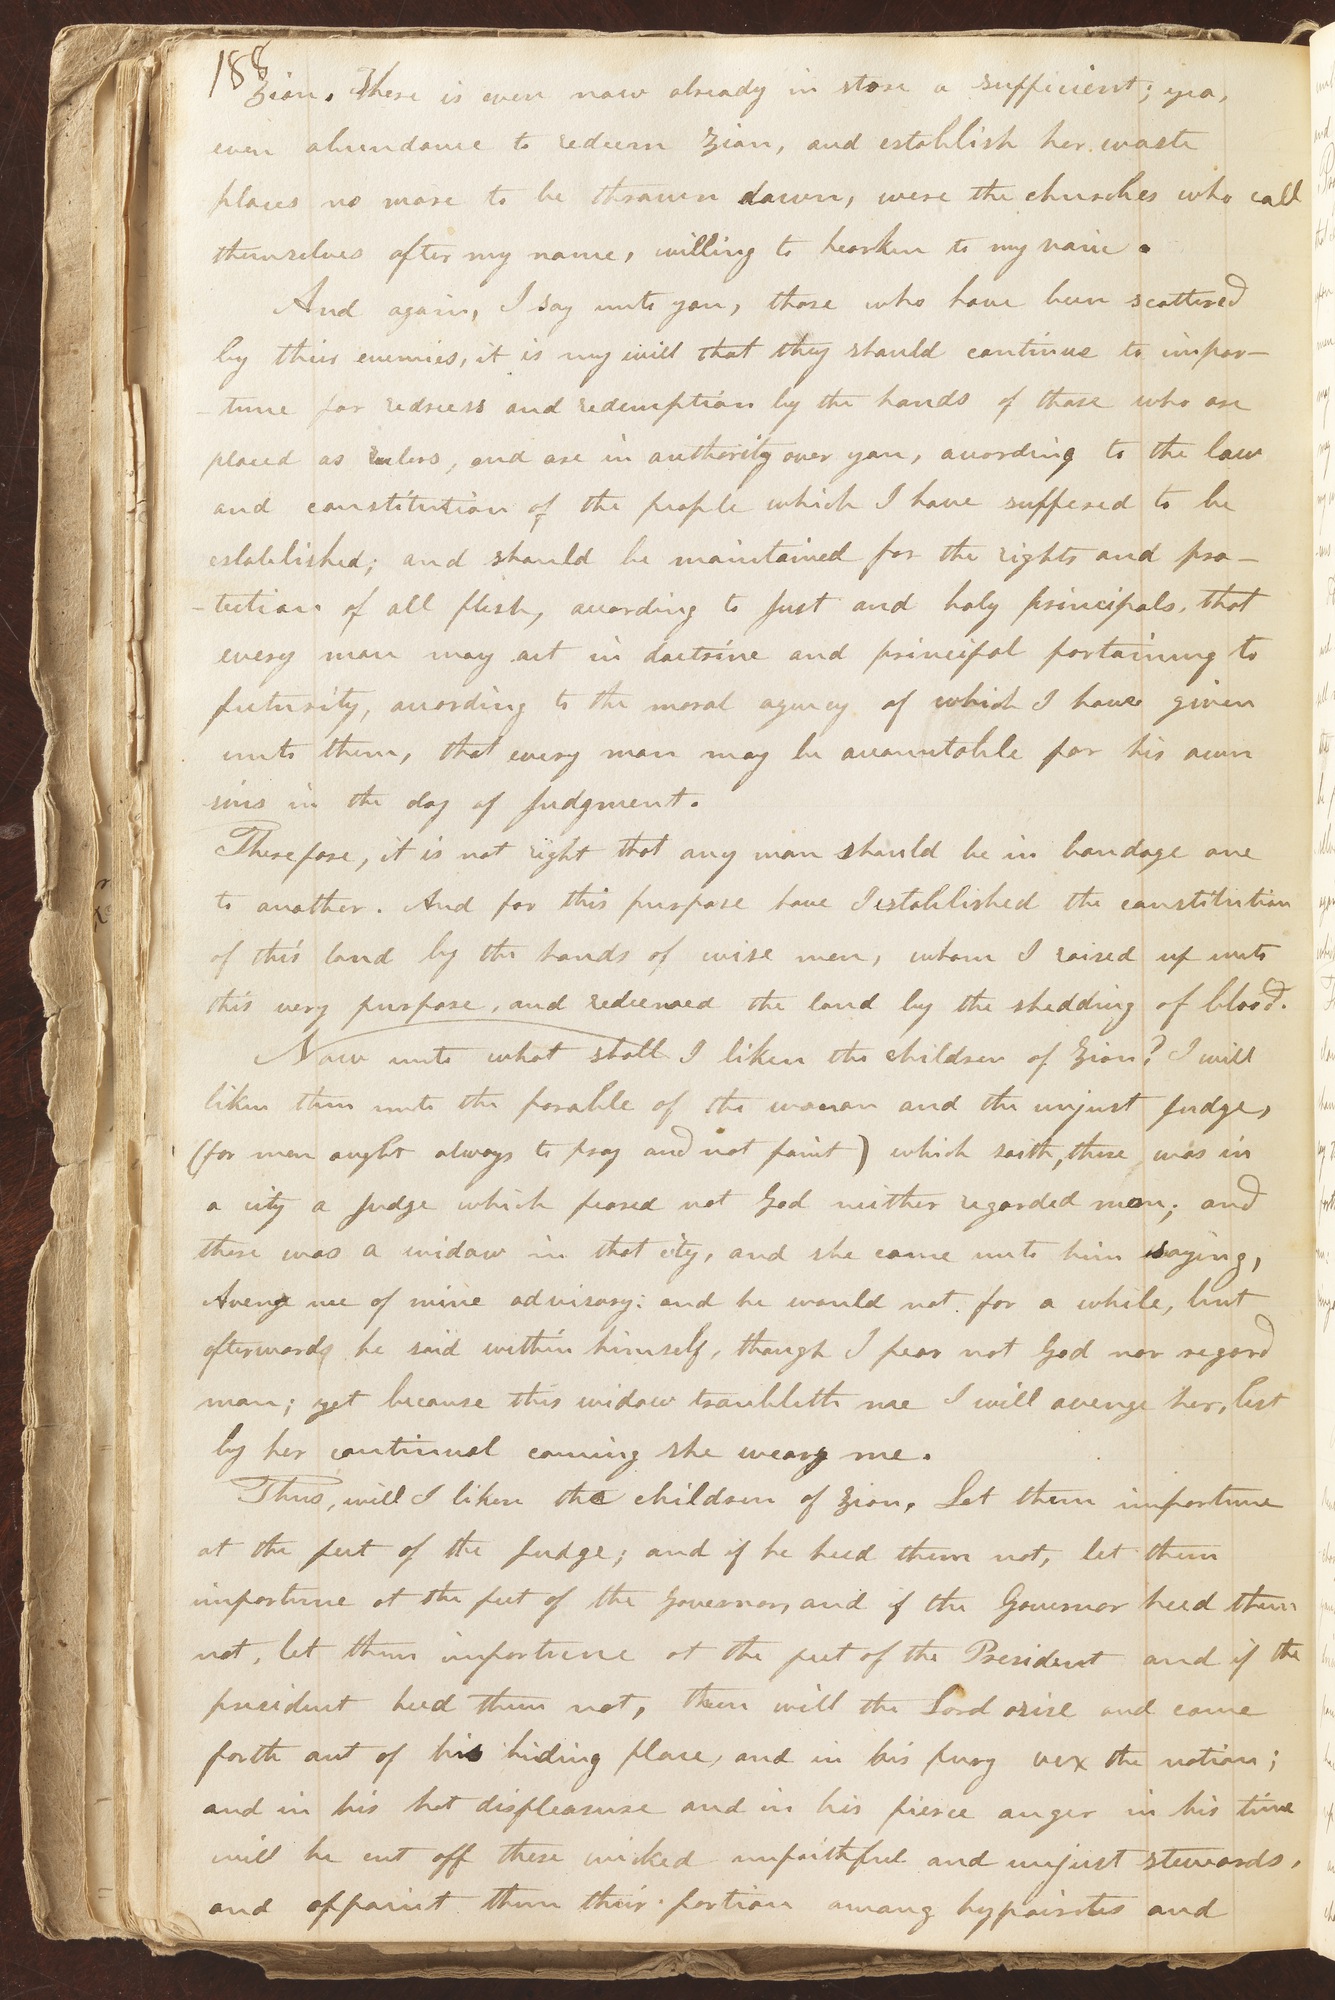 188
Zion. There is even now already in store a sufficient; yea,
even abundance to redeem Zion, and establish her waste
places no more to be thrown down, were the churches who call
themselves after my name, willing to hearken to my voice.
And again, I say unto you, those who have been scattered
by their enemies, it is my will that they should continue to impor-
-tune for redress and redemption by the hands of those who are
placed as rulers, and are in authority over you, according to the law
and constitution of the people which I have suffered to be
established; and should be maintained for the rights and pro-
-tection of all flesh, according to just and holy principals, that
every man may act in doctrine and principal pertaining to
futurity, according to the moral agency of which I have given
unto them, that every man may be accountable for his own
sins in the day of Judgment.
Therefore, it is not right that any man should be in bondage one
to another. And for this purpose have I established the constitution
of this land by the hands of wise men, whom I raised up unto
this very purpose, and redeemed the land by the shedding of blood.
Now unto what shall I liken the children of Zion? I will
liken them unto the parable of the woman and the unjust judge,
(for men ought always to pray and not faint) which saith, there was in
a city a judge which feared not God neither regarded man; and
there was a widow in that city, and she came unto him saying,
Avenge me of mine advisary: and he would not for a while, but
afterwards he said within himself, though I fear not God nor regard
man; yet because this widow troubleth me I will avenge her, lest
by her continual coming she weary me.
Thus, will I liken the children of Zion. Let them importune
at the feet of the Judge; and if he heed them not, let them
importune at the feet of the Governor, and if the Governor heed them
not, let them importune at the feet of the President and if the
president heed them not, then will the Lord arise and come
forth out of his hiding place, and in his fury vex the nation;
and in his hot displeasure and in his fierce anger in his time
will he cut off these wicked unfaithful and unjust stewards,
and appoint them their portion among hypocrites and